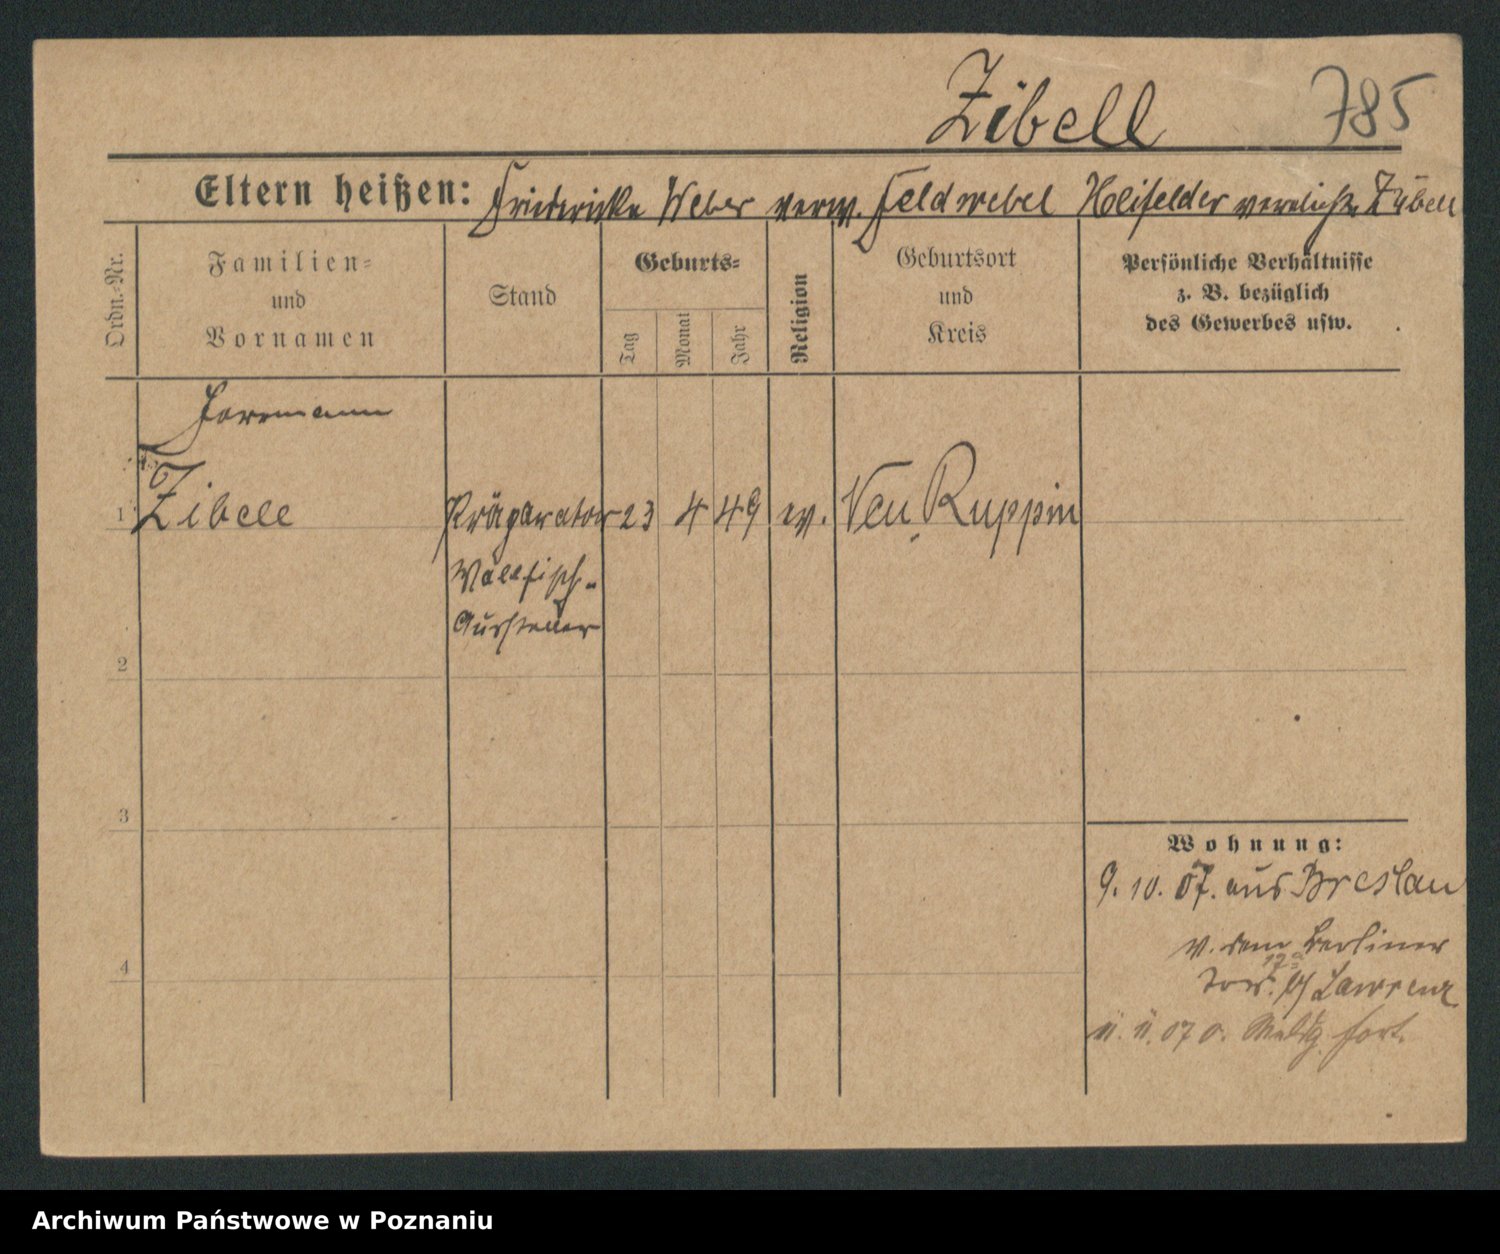 Zibell 785
Eltern heißen: Friedericke Weber verw. Feldwebel verehlichte Zibell
Ordn.-Nr.
Familien-
und
Vornamen
Stand
Geburts-
Tag
Monat
Jahr
Religion
Geburtsort
und
Kreis
Persönliche Verhältnisse
z. B. bezüglich
des Gewerbes usw.
Herrmann
1 Zibell Präparator 23 4 49 ev. Neu Ruppin
Wallfisch-
Aussteller
2
3
4
Wohnung:
9. 10. 07. aus Breslau
v. dem Berliner
Tor. 17a b/ Lawrenz
07 o. Meldg. fort.
Archiwum Państwowe w Poznaniu